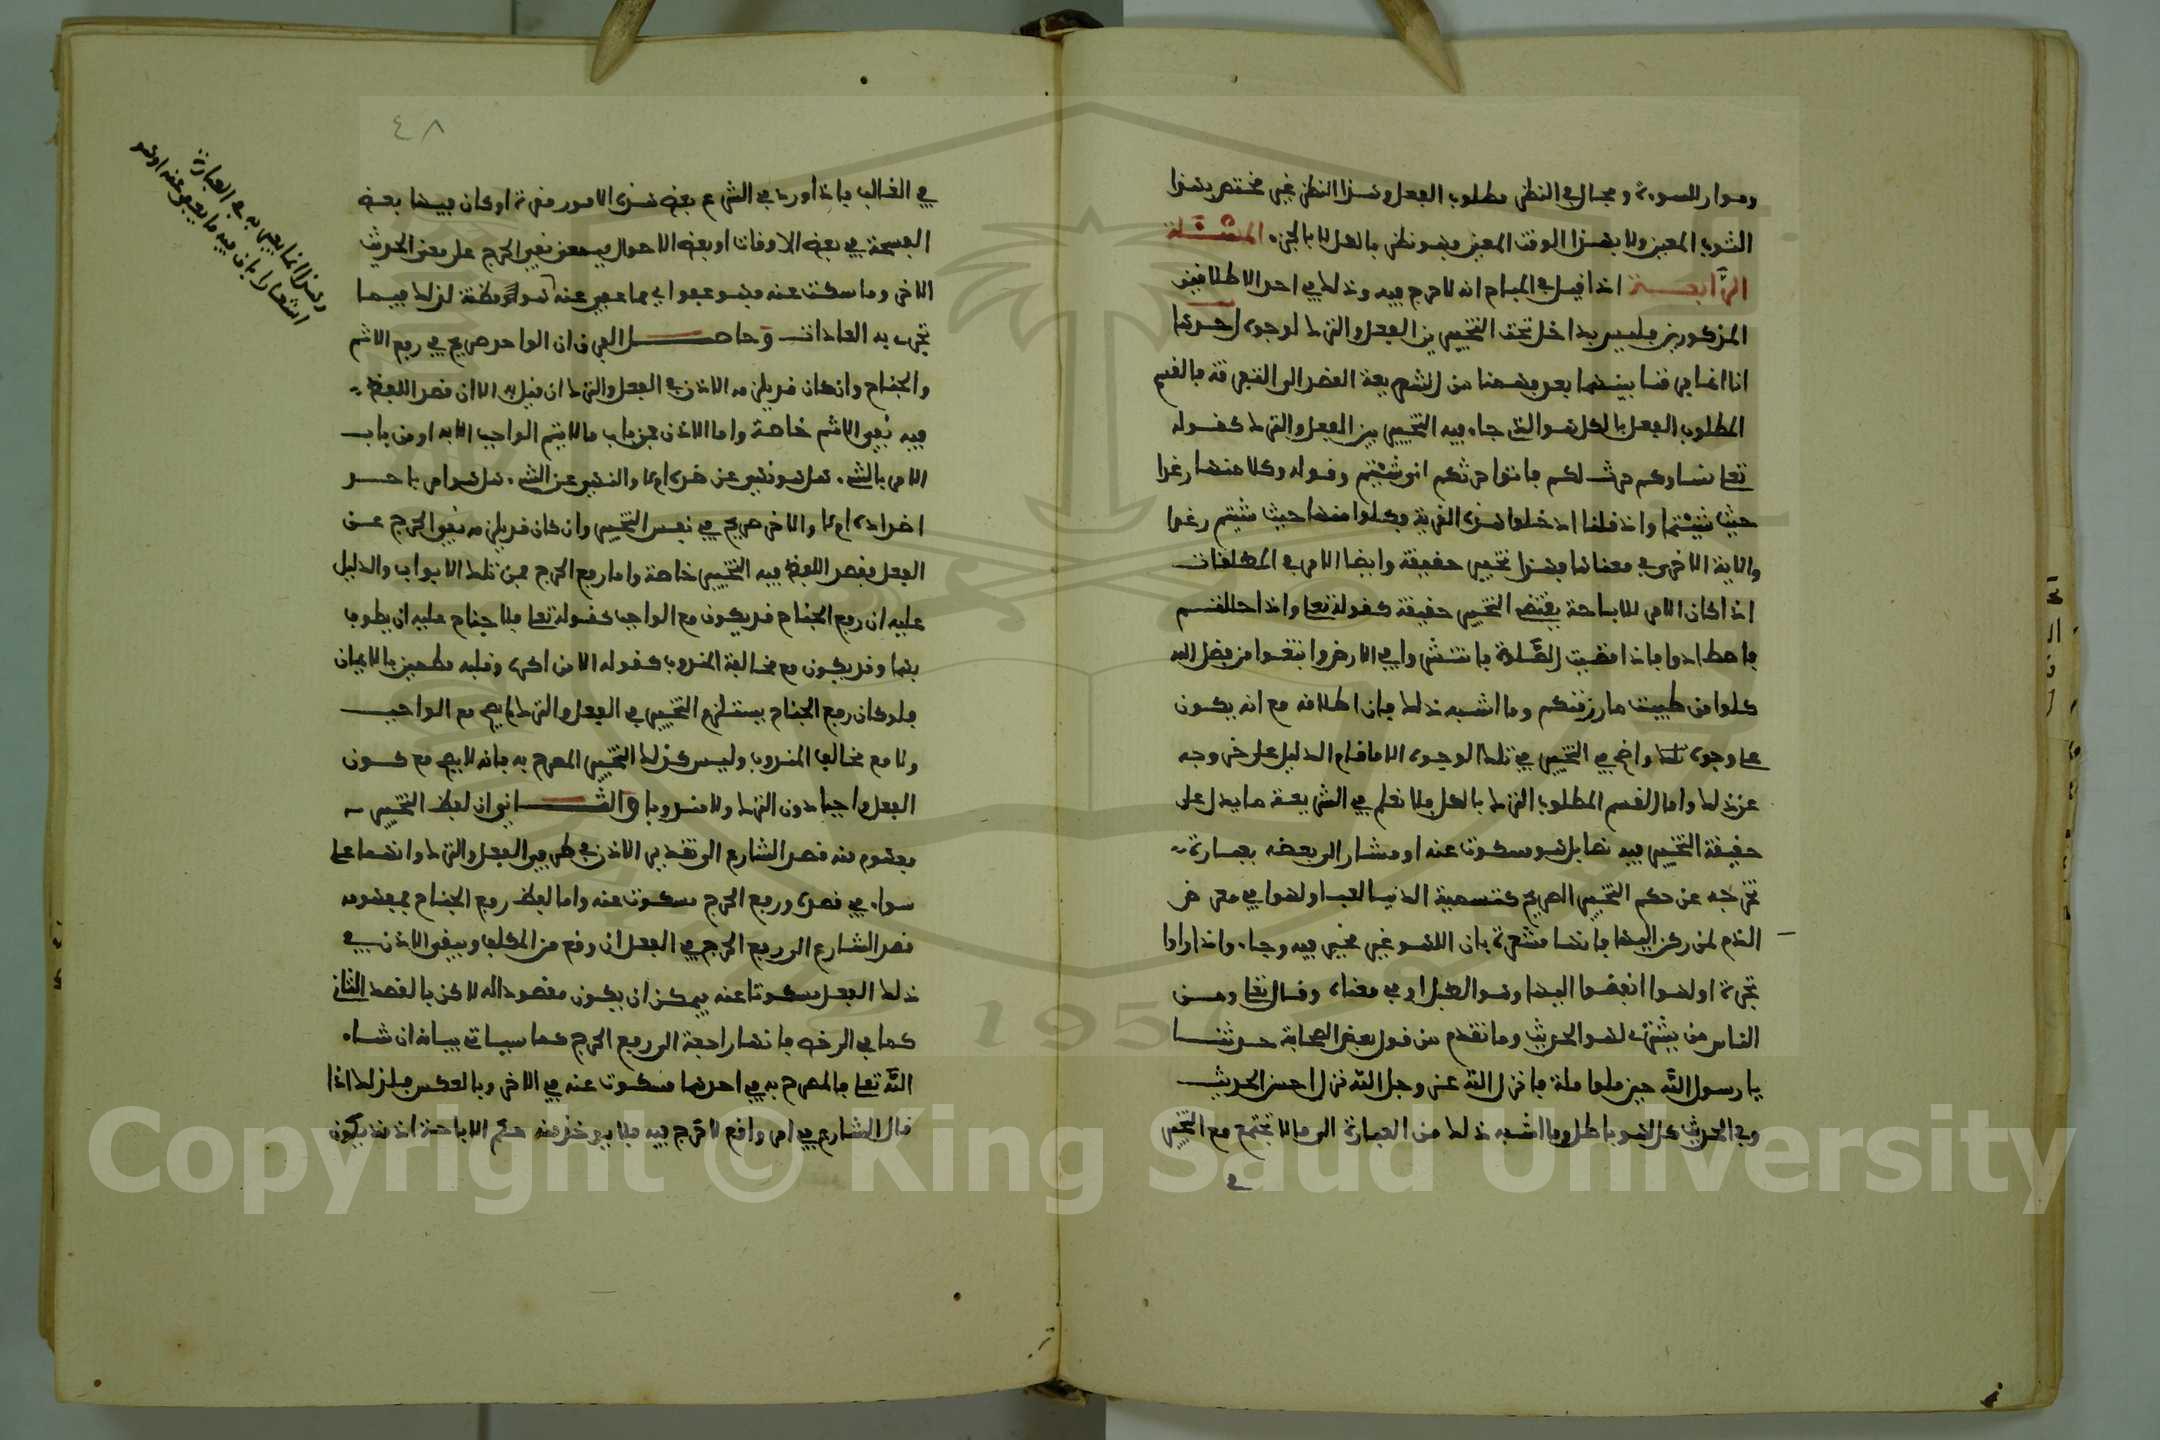 وموارد للسودة ومجال في النظر مطلوب الفعل وهذا النظر غير مختص بهذا
الثوب المعين ولا بهذا الوقت المعين فهو نظر بالكل لا بالجزء المسئلة
الرابعة اذا قيل في المباح انه لا حرج فيه وذلك في احد الاطلاقين
المذكورين فليس بداخل تحت التخيير بين الفعل والترك لوجوه احدها
انا انما فرقنا بينهما بعد فهمنا من الشريعة القصد الى التفرقة فالقسم
المطلوب الفعل بالكل هو الذي جاء فيه التخيير بين الفعل والترك كقوله
تعلى نساوكم حرث لكم فاتوا حرثكم انى شئتم وقوله وكلا منها رغدا
حيث شئتما واذ قلنا ادخلوا هذه القرية فكلوا منها حيث شئتم رغدا
والاية الاخرى في معناها فهذا تخيير حقيقة وايضا الامر في المطلقات
اذا كان الامر للاباحة يقتضي التخيير حقيقة كقوله تعلى واذا حللتم
فاصطادوا فاذا قضيت الصلوة فانتشروا في الارض وابتغوا من فضل الله
كلوا من طيبت ما رزقنكم وما اشبه ذلك فان اطلاقه مع انه يكون
على وجوه واضح في التخيير في تلك الوجوه الا ما قام الدليل على خروجه
عن ذلك واما القسم المطلوب الترك بالكل فلا نعلم في الشريعة ما يدل على
حقيقة التخيير فيه نصا بل هو مسكوت عنه او مشار الى بعضه بعبارة
تخرجه عن حكم التخيير الصريح كتسمية الدنيا لعبا ولهوا في معرض
الذم لمن ركن اليها فانها مشعرة بان اللهو غير مخير فيه وجاء واذا راوا
تجرة او لهوا انفضوا اليها وهو الطبل او في معناه وقال تعلى ومن
الناس من يشتري لهو الحديث وما تقدم من قول بعض الصحابة حدثنا
يا رسول الله حين ملوا ملة فانزل الله عز وجل الله نزل احسن الحديث
وفي الحديث كل لهو باطل وما اشبه ذلك من العبارة التي لا تجتمع مع التخيير
٤٨
في الغالب فاذا ورد في الشرع بعض هذه الامور مقدرة او كان فيها بعض
الفسحة في بعض الاوقات او بعض الاحوال فمعنى نفي الحرج على معنى الحديث
الاخر وما سكت عنه فهو عفو اي مما عفي عنه لذلك فيما
تجري به العادات وحاصل الفرق ان الواحد صريح في رفع الاثم
والجناح وان كان قد يلزمه الاذن في الفعل والترك ان قيل به الا ان قصد اللفظ
فيه نفي الاثم خاصة واما الاذن فمن باب ما لا يتم الواجب الا به او من باب
الامر بالشيء هل هو نهي عن ضده ام لا والنهي عن الشيء هل هو امر باحد
اضداده ام لا والاخر صريح في نفس التخيير وان كان قد يلزمه نفي الحرج عن
الفعل فقصد اللفظ فيه التخيير خاصة واما رفع الحرج فمن تلك الابواب والدليل
عليه ان رفع الجناح قد يكون مع الواجب كقوله تعلى فلا جناح عليه ان يطوف
بهما وقد يكون مع مخالفة المندوب كقوله الا من اكره وقلبه مطمئن بالايمان
فلو كان رفع الجناح يستلزم التخيير في الفعل والترك لم يصح مع الواجب
ولا مع مخالفة المندوب وليس كذلك التخيير المصرح به فانه لا يصح مع كون
الفعل واجبا دون الترك ولا مندوبا والثاني ان لفظ التخيير
مفهوم منه قصد الشارع الى تقدير الاذن في طرفي الفعل والترك وانهما على
سواء في قصده ورفع الحرج مسكوت عنه واما لفظ رفع الجناح فمفهومه
قصد الشارع الى رفع الحرج في الفعل ان وقع من المكلف وبقي الاذن في
ذلك الفعل مسكوتا عنه فيمكن ان يكون مقصودا له لاكن بالقصد الثاني
كما في الرخص فانها راجعة الى رفع الحرج كما سياتي بيانه ان شاء
الله تعلى فالمصرح به في احدهما مسكوت عنه في الاخر وبالعكس فلذلك اذا
قال الشارع في امر واقع لا حرج فيه فلا يوخذ منه حكم الاباحة اذ قد يكون
وهذا انما يعبر به في العبارة
اشعارا بان فيه ما يعفى عنه او هو
Copyright © King Saud University
1957